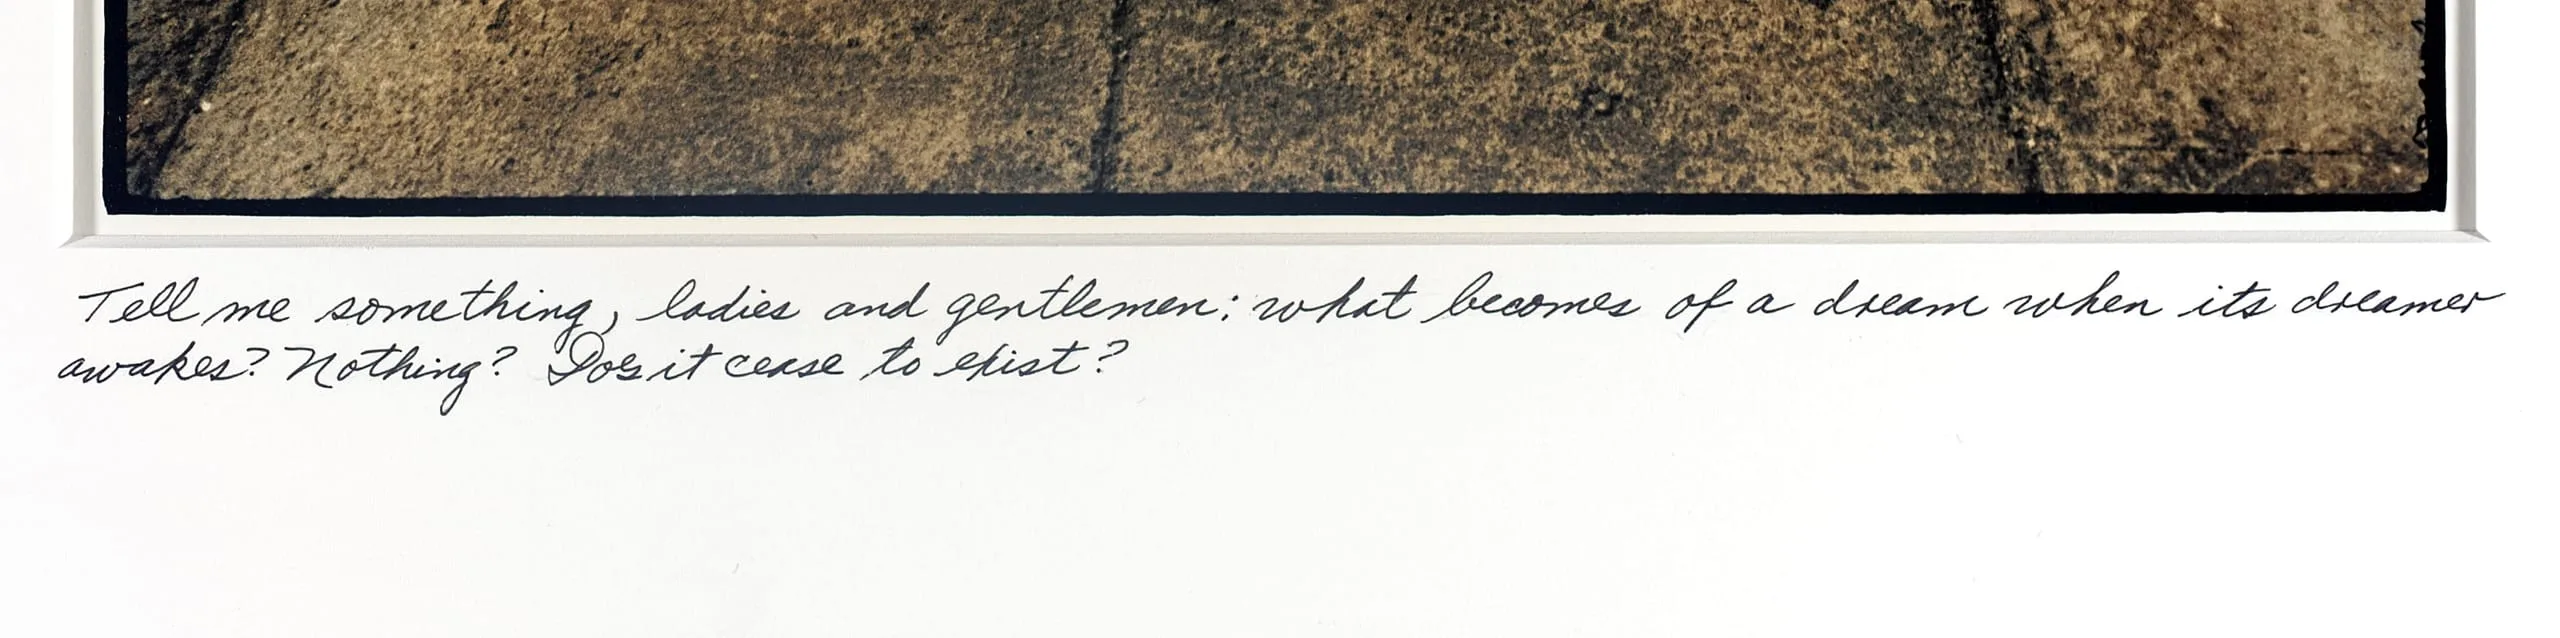 Tell me something, ladies and gentlemen: what becomes of a dream when its dreamer
awakes? Nothing? Does it cease to exist?